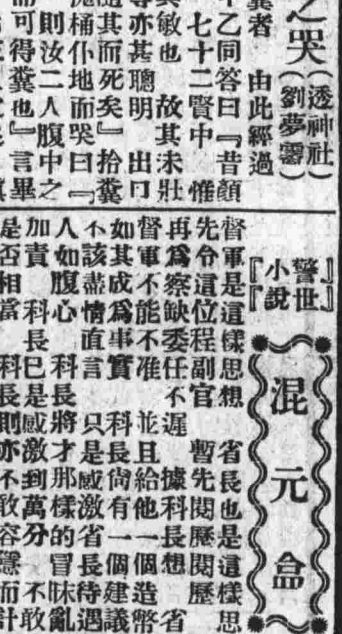 之哭(透神社)(劉夢靈)
糞者 由此經過
乙同答曰『昔顏
七十二賢中 惟
其敏也 故其未壯
亦甚聰明 出口
其而死矣』拾糞
桶仆地而哭曰『
則汝二人腹中之
可得糞也』言畢
『警世』
『小說』
混元盒
督軍是這樣思想 省長也是這樣思
先令這位程副官 暫先閱歷閱歷
再爲察缺委任不遲 據科長想 省
督軍不能不准 並且給他一個造幣
如其成爲事實 科長尚有一個建議
不該盡情直言 只是感激省長待遇
人如腹心 科長將才那樣的冒昧亂
加責 科長已是感激到萬分 不敢
是否相當 科長則亦不敢容隱而計